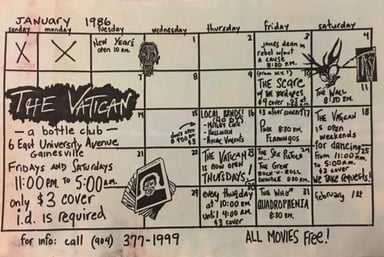 January 1986
Sunday
monday
Tuesday
wednesday
Thursday
Friday
saturday
New Years
open 10 P.M.
1
2
3
james dean in
rebel w/out
a cause
8:30 P.M.
4
THE VATICAN
- a bottle club -
6 East University Avenue
Gainesville
FRIDAYS AND SATURDAYS
11:00 PM TO 5:00 AM.
only $3 cover
i.d. is required
7
8
9
10
THE Scare
$4 cover
11
THE WALL
8:30 P.M.
14
15
16
LOCAL BANDS!
17
after concert
Punk 8:30 P.M.
Flamingos
18
THE VATICAN
IS open
weekends
for dancing
From 11:00 P.M.
5:00 A.M.
$3 cover
WE TAKE REQUESTS!
22
THE VATICAN
is now open
THURSDAYS!
23
24
Sex Pistols
The Great
Rock-n-Roll
Swindle 8:30 P.M.
25
29
every Thursday
at 10:00 PM
until 4:00 AM
$3 cover
30
THE WHO
QUADROPHENIA
8:30 P.M.
31
February 1st
for info: call (904) 377-1999
ALL MOVIES Free!